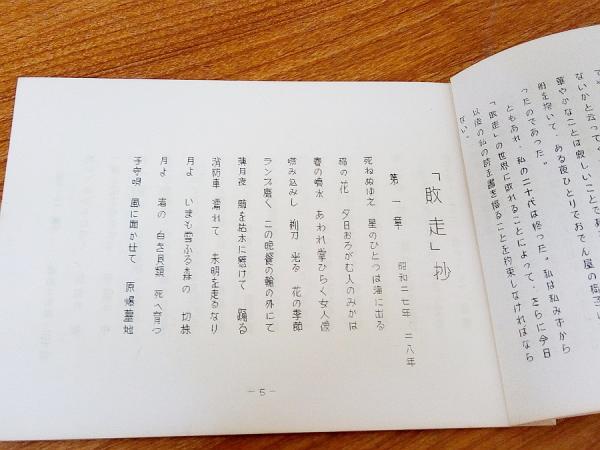 ないかと云って
華やかなことは寂しいことで
明を抱いて、ある夜ひとりでおでん屋の椅子
ったのであった。
ともあれ、私の二十代は終った。私は私みずから
「敗走」の世界に敗れることによって、さらに今日
以後の私の詩を書き揚ることを約束しなければなら
ない。
「敗走」抄
第一章 昭和二七年、二八年
死ねぬゆえ 星のひとつは海に出る
稲の花 夕日おろがむ人のみかは
春の噴水 あわれ掌ひらく女人像
噛み込みし 剃刀 光る 花の季節
ランプ磨く この晩餐の輪の外にて
薄月夜 鶴を枯木に懸けて 踊る
消防車 濡れて 未明を走るなり
月よ いまも雪ふる森の 切株
月よ 渚の 白き貝類 死へ育つ
子守唄 風に聞かせて 原爆墓地
―5―